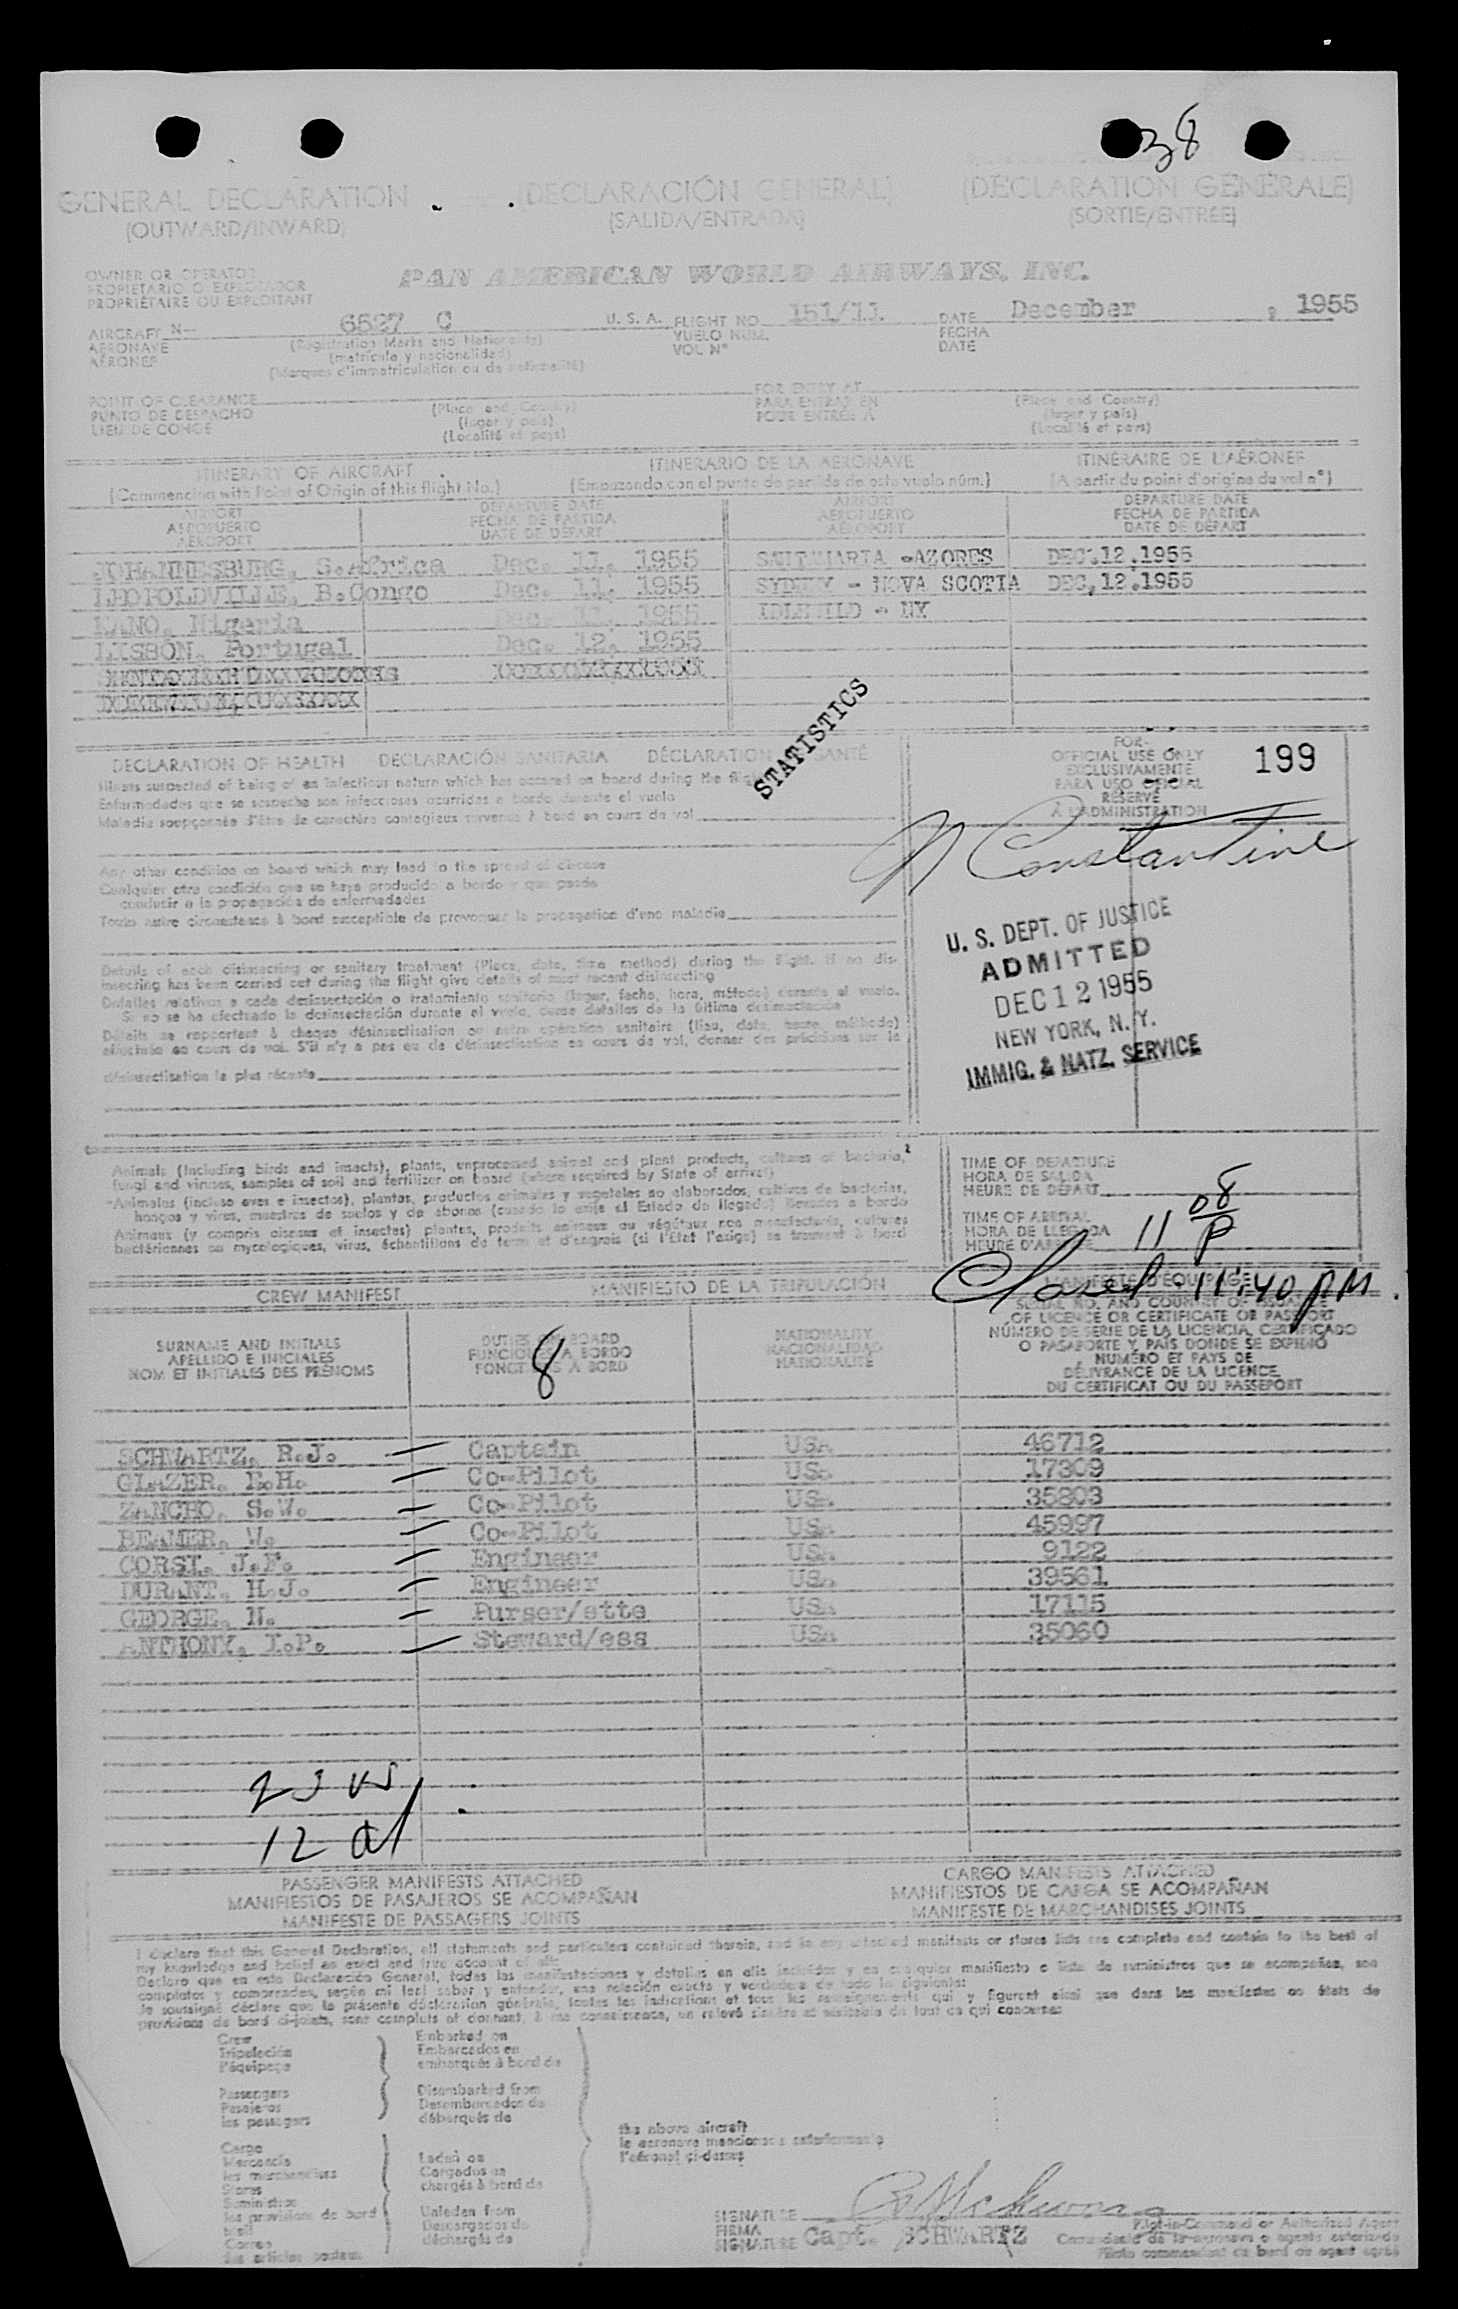 38
GENERAL DECLARATION (DECLARACIÓN GENERAL) (DÉCLARATION GÉNÉRALE)
(OUTWARD/INWARD) (SALIDA/ENTRADA) (SORTIE/ENTRÉE)
OWNER OR OPERATOR
PROPIETARIO O EXPLOTADOR
PROPRIÉTAIRE OU EXPLOITANT
PAN AMERICAN WORLD AIRWAYS, INC.
AIRCRAFT N- 6527 C U. S. A. FLIGHT NO. 151/11 DATE December , 1955
AERONAVE (Registration Marks and Nationality) VUELO NUM. FECHA
AÉRONEF (matrícula y nacionalidad) VOL N° DATE
(Marques d'immatriculation ou de nationalité)
POINT OF CLEARANCE FOR ENTRY AT
PUNTO DE DESPACHO (Place and Country) PARA ENTRAR EN (Place and Country)
LIEU DE CONGÉ (lugar y país) POUR ENTRÉE À (lugar y país)
(Localité et pays) (Localité et pays)
ITINERARY OF AIRCRAFT ITINERARIO DE LA AERONAVE ITINÉRAIRE DE L'AÉRONEF
(Commencing with Point of Origin of this flight No.) (Empezando con el punto de partida de este vuelo núm.) (A partir du point d'origine du vol n°)
AIRPORT DEPARTURE DATE AIRPORT DEPARTURE DATE
AEROPUERTO FECHA DE PARTIDA AEROPUERTO FECHA DE PARTIDA
AÉROPORT DATE DE DÉPART AÉROPORT DATE DE DÉPART
JOHANNESBURG, S.Africa Dec. 11, 1955 SANTMARIA -AZORES DEC.12.1955
LEOPOLDVILLE, B.Congo Dec. 11, 1955 SYDNEY - NOVA SCOTIA DEC,12.1955
KANO, Nigeria Dec. 11, 1955 IDLEWILD - NY
LISBON, Portugal Dec. 12, 1955
STATISTICS
DECLARATION OF HEALTH DECLARACIÓN SANITARIA DÉCLARATION SANTÉ
Illness suspected of being of an infectious nature which has occurred on board during the flight
Enfermedades que se sospeche son infecciosas ocurridas a bordo durante el vuelo
Maladie soupçonnée d'être de caractère contagieux survenue à bord en cours de vol
FOR
OFFICIAL USE ONLY
EXCLUSIVAMENTE
PARA USO OFICIAL
RÉSERVÉ
À L'ADMINISTRATION
199
N Constantine
Any other condition on board which may lead to the spread of disease
Cualquier otra condición que se haya producido a bordo y que pueda
conducir a la propagación de enfermedades
Toute autre circonstance à bord susceptible de provoquer la propagation d'une maladie
U. S. DEPT. OF JUSTICE
ADMITTED
DEC 12 1955
NEW YORK, N. Y.
IMMIG. & NATZ. SERVICE
Details of each disinsecting or sanitary treatment (Place, date, time method) during the flight. If no dis-
insecting has been carried out during the flight give details of most recent disinsecting
Detalles relativos a cada desinsectación o tratamiento sanitario (lugar, fecha, hora, método) durante el vuelo.
Si no se ha efectuado la desinsectación durante el vuelo, dense detalles de la última desinsectación
Détails se rapportant à chaque désinsectisation ou autre opération sanitaire (lieu, date, heure, méthode)
effectuée en cours de vol. S'il n'y a pas eu de désinsectisation en cours de vol, donner des précisions sur la
désinsectisation la plus récente
Animals (including birds and insects), plants, unprocessed animal and plant products, cultures of bacteria,
fungi and viruses, samples of soil and fertilizer on board (where required by State of arrival)
Animales (incluso aves e insectos), plantas, productos animales y vegetales no elaborados, cultivos de bacterias,
hongos y virus, muestras de suelos y de abonos (cuando lo exija el Estado de llegada) llevados a bordo
Animaux (y compris oiseaux et insectes) plantes, produits animaux ou végétaux non manufacturés, cultures
bactériennes ou mycologiques, virus, échantillons de terre et d'engrais (si l'État l'exige) se trouvant à bord
TIME OF DEPARTURE
HORA DE SALIDA
HEURE DE DÉPART
TIME OF ARRIVAL
HORA DE LLEGADA 11 08 P
HEURE D'ARRIVÉE
Closed - 11:40 PM.
CREW MANIFEST MANIFIESTO DE LA TRIPULACIÓN MANIFESTE D'ÉQUIPAGE
SURNAME AND INITIALS
APELLIDO E INICIALES
NOM ET INITIALES DES PRÉNOMS
DUTIES ON BOARD
FUNCIONES A BORDO
FONCTIONS À BORD
8
NATIONALITY
NACIONALIDAD
NATIONALITÉ
SERIAL NO. AND COUNTRY OF ISSUANCE
OF LICENCE OR CERTIFICATE OR PASSPORT
NÚMERO DE SERIE DE LA LICENCIA, CERTIFICADO
O PASAPORTE Y PAÍS DONDE SE EXPIDIÓ
NUMÉRO ET PAYS DE
DÉLIVRANCE DE LA LICENCE,
DU CERTIFICAT OU DU PASSEPORT
SCHWARTZ, R.J. Captain USA 46712
GLAZER, E.H. Co-Pilot USA 17309
ZANCHO, S.W. Co-Pilot USA 35803
BEAMER, W. Co-Pilot USA 45997
CORSI, J.F. Engineer USA 9122
DURANT, H.J. Engineer USA 39561
GEORGE, N. Purser/ette USA 17115
ANTHONY, I.P. Steward/ess USA 35060
23 US
12 Al
PASSENGER MANIFESTS ATTACHED CARGO MANIFESTS ATTACHED
MANIFIESTOS DE PASAJEROS SE ACOMPAÑAN MANIFIESTOS DE CARGA SE ACOMPAÑAN
MANIFESTE DE PASSAGERS JOINTS MANIFESTE DE MARCHANDISES JOINTS
I declare that this General Declaration, all statements and particulars contained therein, and in any attached manifests or stores lists are complete and contain to the best of
my knowledge and belief an exact and true account of all:
Declaro que en esta Declaración General, todas las manifestaciones y detalles en ella incluídos y en cualquier manifiesto o lista de suministros que se acompañen, son
completos y comprenden, según mi leal saber y entender, una relación exacta y verdadera de todo lo siguiente:
Je soussigné déclare que la présente déclaration générale, toutes les indications et tous les renseignements qui y figurent ainsi que dans les manifestes ou états de
provisions de bord ci-joints, sont complets et donnent, à ma connaissance, un relevé sincère et véritable de tout ce qui concerne:
Crew
Tripulación
l'équipage
Passengers
Pasajeros
les passagers
Embarked on
Embarcados en
embarqués à bord de
Disembarked from
Desembarcados de
débarqués de
Cargo
Mercancía
les marchandises
Stores
Suministros
les provisions de bord
Mail
Correo
des articles postaux
Laden on
Cargados en
chargés à bord de
Unladen from
Descargados de
déchargés de
the above aircraft
la aeronave mencionada anteriormente
l'aéronef ci-dessus
SIGNATURE
FIRMA
SIGNATURE Capt. SCHWARTZ
Pilot-in-Command or Authorized Agent
Comandante de la aeronave o agente autorizado
Pilote commandant de bord ou agent agréé